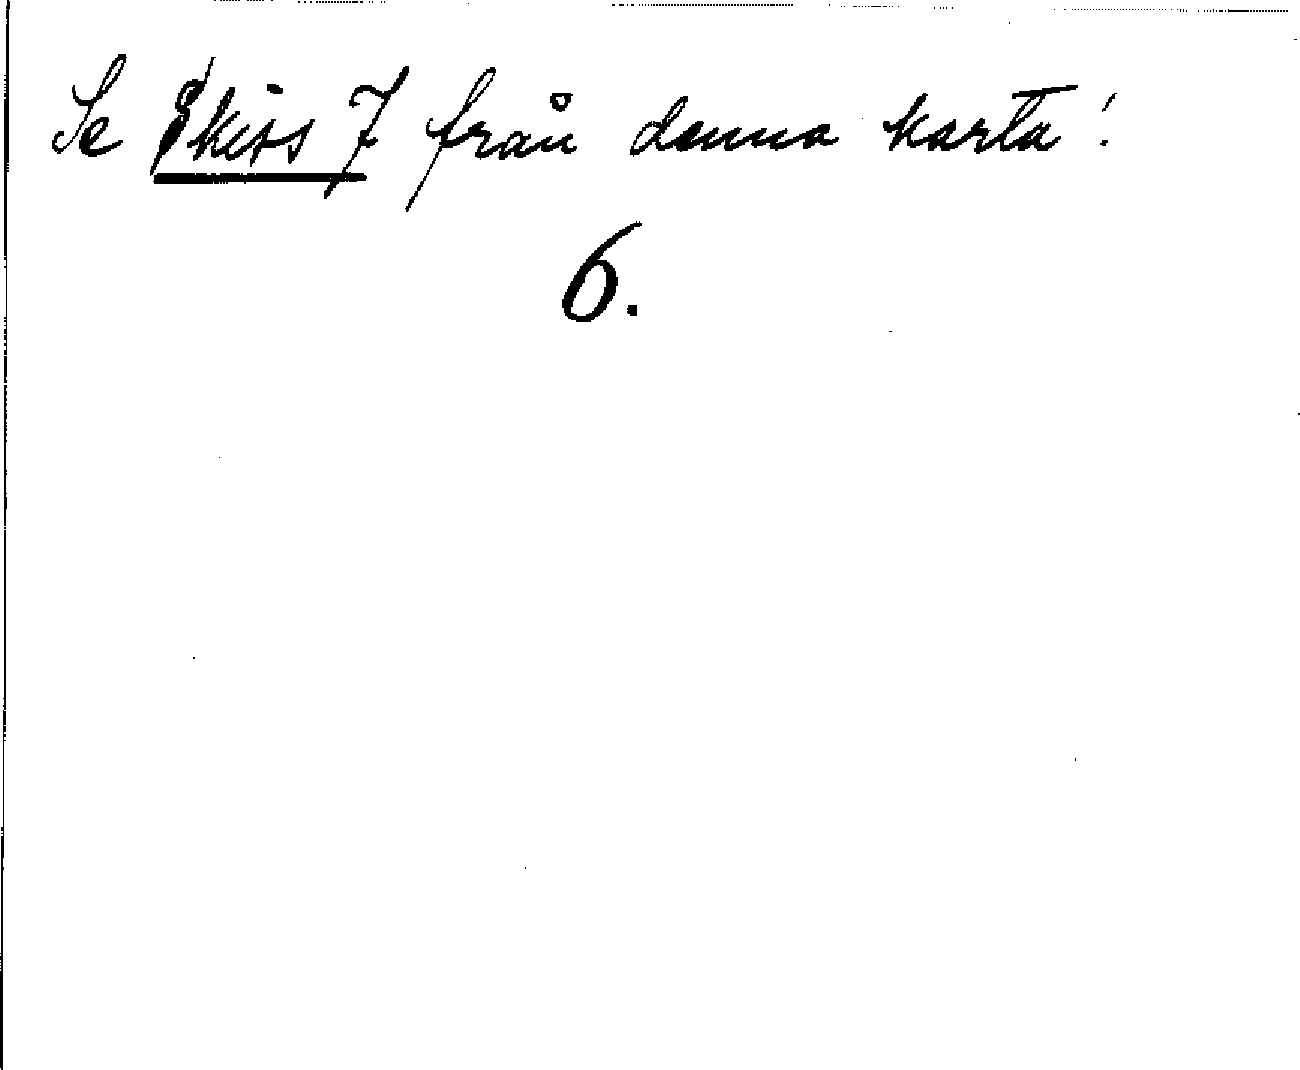 Se Skiss 7 från denna karta!
6.